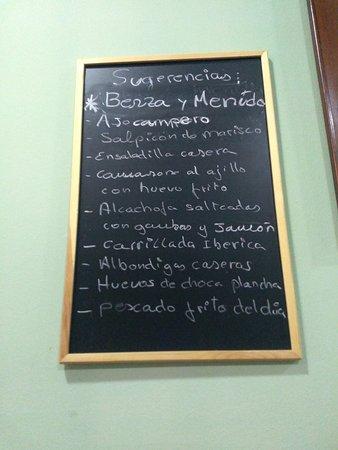 Sugerencias:
* Berza y Menudo
- Ajo campero
Salpicón de marisco
- Ensaladilla casera
- Camarone al ajillo
con huevo frito
- Alcachofa salteadas
con gambas y Jamón
- Carrillada Iberica
- Albondigas caseras
- Huevas de choca plancha
- Pescado frito del dia